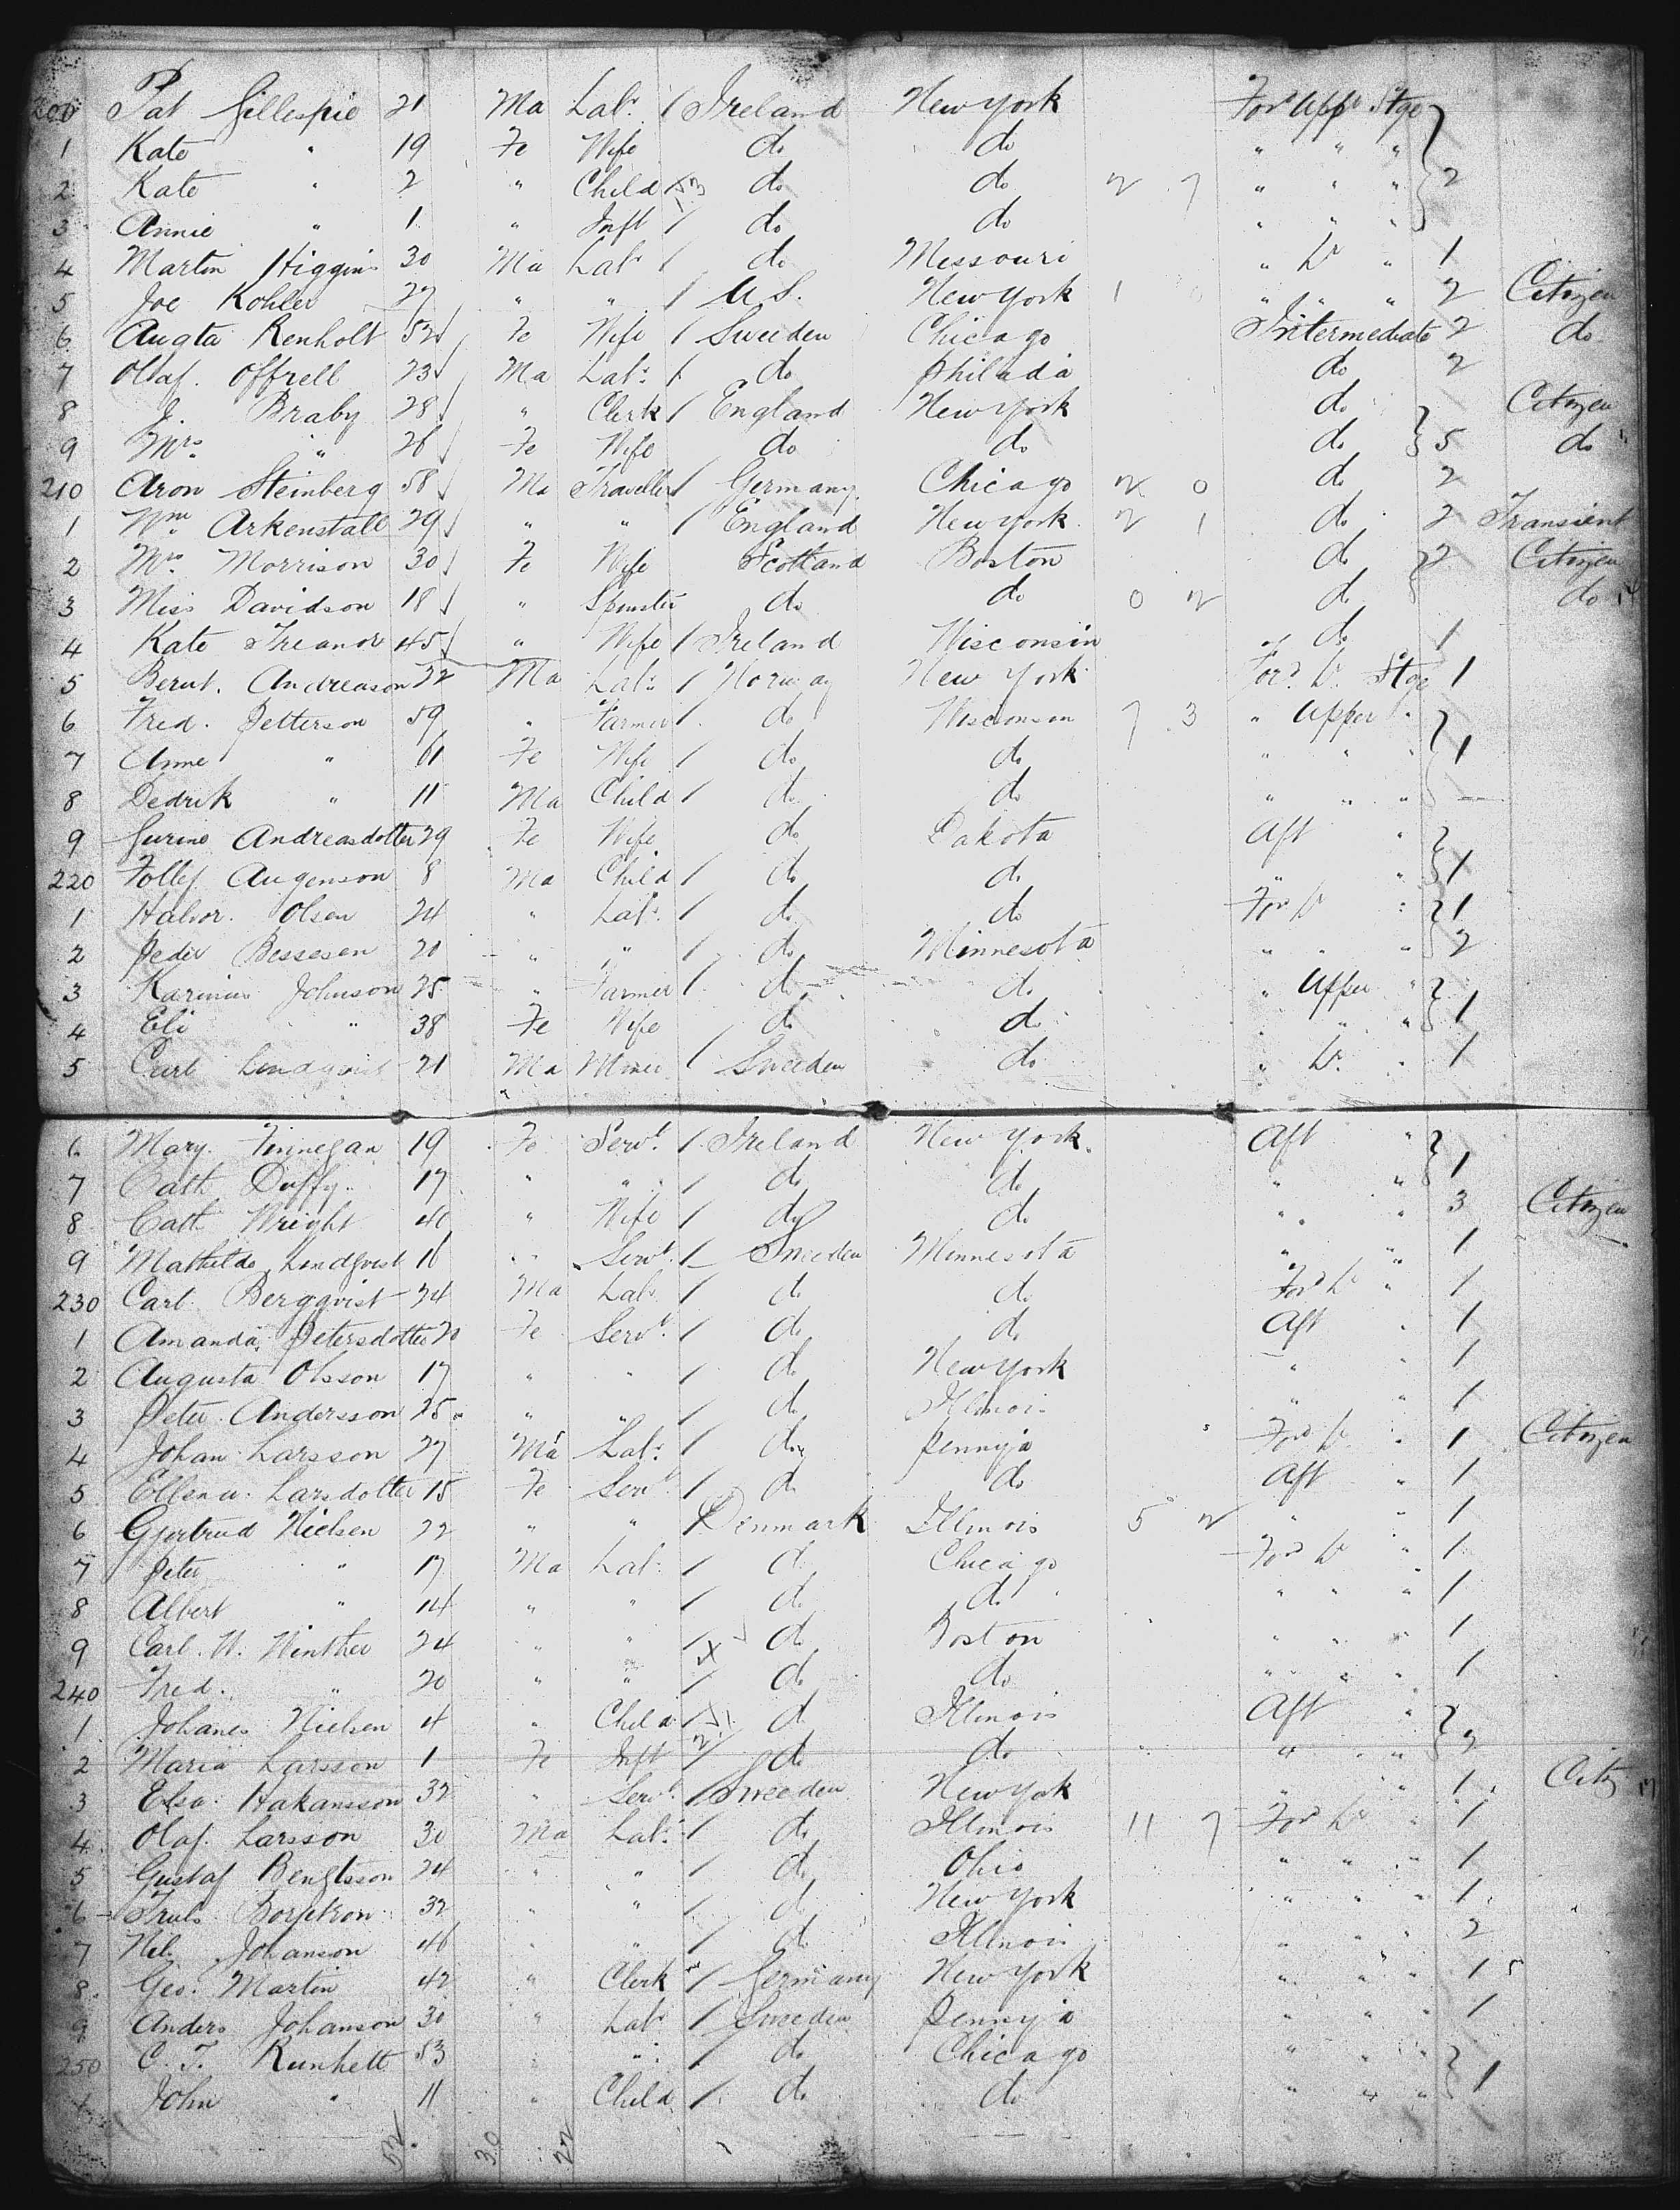 200 Pat Gillespie 21 Ma Labr 1 Ireland New York Ford Uppr Stge
1 Kate " 19 Fe Wife do do " " "
2 Kate " 2 " Child do do 2 7 " " " 2
3 Annie " 1 " Inft 1 do do " " "
4 Martin Higgins 30 Ma Labr 1 do Missouri " Lr " 1
5 Joe Kohler 27 " " 1 U.S. New York 1 0 " " " 2 Citizen
6 Augta Renholt 52 Fe Wife 1 Sweeden Chicago Intermediate 2 do
7 Olaf. Offrell 23 Ma Labr 1 do Philada do 2
8 J. Braby 28 " Clerk 1 England New York do Citizen
9 Mrs " 26 Fe Wife do do do 5 do
210 Aron Steinberg 58 Ma Traveller 1 Germany Chicago 2 0 do 2
1 Wm Arkenstall 29 " " 1 England New York 2 1 do 2 Transient
2 Mrs Morrison 30 Fe Wife Scotland Boston do 2 Citizen
3 Miss Davidson 18 " Spinster do do 0 2 do do
4 Kate Treanor 45 " Wife 1 Ireland Wisconsin do 1
5 Bernt. Andreason 22 Ma Labr 1 Norway New York Ford Lr Stge 1
6 Fred. Petterson 59 " Farmer 1 do Wisconsin 7 3 " Upper "
7 Anne " 61 Fe Wife 1 do do " " " 1
8 Dedrik " 11 Ma Child 1 do do " " "
9 Gurine Andreasdotter 29 Fe Wife do Dakota Aft "
220 Follef Augenson 8 Ma Child 1 do do " " 1
1 Halvor. Olsen 24 " Labr 1 do do For Lr " 1
2 Peder Bessesen 20 " " 1 do Minnesota " " " 2
3 Karinus Johnson 25 " Farmer 1 do do " Upper "
4 Eli " 38 Fe Wife do do " " " 1
5 Carl Lindqvist 21 Ma Miner 1 Sweeden do " Lr " 1
6 Mary. Finnegan 19 Fe Servt 1 Ireland New York Aft "
7 Cath Duffy 17 " " 1 do do " " 1
8 Cath Wright 40 " Wife 1 do do " " 3 Citizen
9 Mathilda Lindqvist 16 " Servt 1 Sweeden Minnesota " " 1
230 Carl. Bergqvist 24 Ma Labr 1 do do For Lr " 1
1 Amanda Petersdotter 20 Fe Servt 1 do do Aft " 1
2 Augusta Olsson 17 " " 1 do New York " " 1
3 Peter Andersson 25 " " 1 do Illinois " " 1
4 Johan Larsson 27 Ma Labr 1 do Pennya For Lr " 1 Citizen
5 Ellena. Larsdotter 15 Fe Servt 1 do do Aft " 1
6 Gjertrud Nielsen 22 " " 1 Denmark Illinois 5 2 " " 1
7 Peter " 17 Ma Labr 1 do Chicago For Lr " 1
8 Albert " 14 " " 1 do do " " " 1
9 Carl. W. Winther 24 " " 1 do Boston " " " 1
240 Fred. " 20 " " 1 do do " " " 1
1 Johanes Nielsen 4 " Child 1 do Illinois Aft "
2 Maria Larsson 1 Fe Inft 1 do do " " 2
3 Elsa. Hakansson 32 " Servt 1 Sweeden New York " " 1 Citz
4 Olaf. Larsson 30 Ma Labr 1 do Illinois 11 7 For Lr " 1
5 Gustaf Bengtsson 24 " " 1 do Ohio " " " 1
6 Truls 32 " " 1 do New York " " " 1
7 Nils Johanson 46 " " 1 do Illinois " " " 2
8 Geo. Martin 42 " Clerk 1 Germany New York " " " 1
9 Anders Johanson 30 " Labr 1 Sweeden Pennya " " " 1
250 C. T. Runhelt 53 " " 1 do Chicago " " "
1 John " 11 " Child 1 do do " " " 1
52 30 22